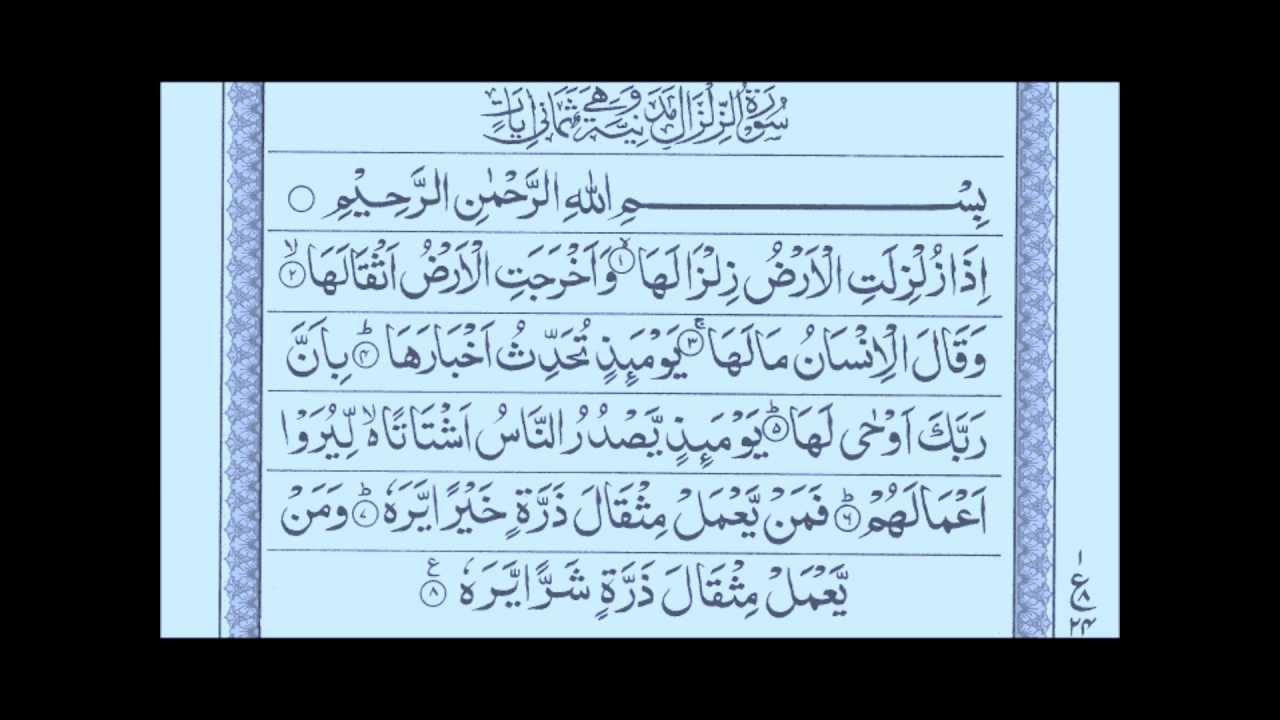 سُوْرَةُ الزِّلْزَالِ مَدَنِيَّةٌ وَّهِيَ ثَمَانِيْ اٰيَاتٍ
بِسْمِ اللهِ الرَّحْمٰنِ الرَّحِيْمِ
اِذَا زُلْزِلَتِ الْاَرْضُ زِلْزَالَهَا ۙ۝۱ وَاَخْرَجَتِ الْاَرْضُ اَثْقَالَهَا ۙ۝۲
وَقَالَ الْاِنْسَانُ مَا لَهَا ۚ۝۳ يَوْمَىِٕذٍ تُحَدِّثُ اَخْبَارَهَا ؕ۝۴ بِاَنَّ
رَبَّكَ اَوْحٰى لَهَا ؕ۝۵ يَوْمَىِٕذٍ يَّصْدُرُ النَّاسُ اَشْتَاتًا ە ۙ لِّيُرَوْا
اَعْمَالَهُمْ ؕ۝۶ فَمَنْ يَّعْمَلْ مِثْقَالَ ذَرَّةٍ خَيْرًا يَّرَهٗ ؕ۝۷ وَمَنْ
يَّعْمَلْ مِثْقَالَ ذَرَّةٍ شَرًّا يَّرَهٗ ۝۸ ع
۱
ع ۸
۲۴